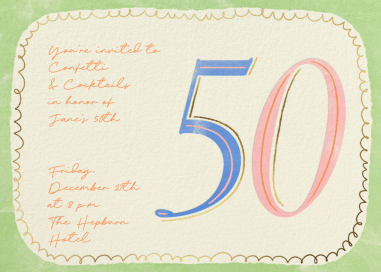 You're invited to
Confetti
& Cocktails
in honor of
Jane's 50th
Friday,
December 29th
at 8 pm
The Hepburn
Hotel
50